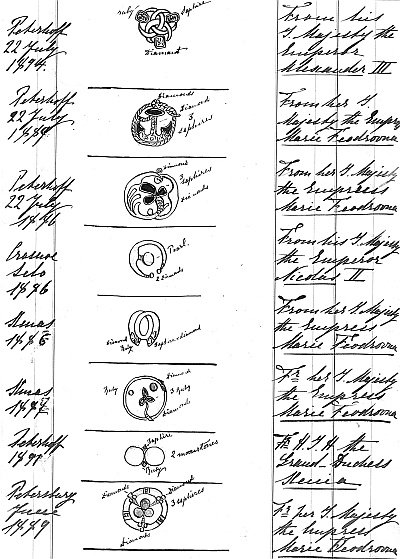 Peterhoff
22 July
1894.
Ruby
Sapphire
Diamant
From his
I. Majesty the
Emperor
Alexander III
Peterhoff
22 July
Diamonds
Diamond
3
sapfieres
From her I.
Majesty the Empress
Marie Feodrovna
Peterhoff
22 July
1896
diamond
3
sapfieres
From her I. Majesty
the Empress
Marie Feodrovna
Selo
1896
Pearl.
2 diamonds
From his I. Majesty
the Emperor
Nicolas II
Diamond
Ruby
From her I. Majesty
the Empress
Marie Feodrovna
Ruby
Diamond
3 Ruby
Diamonds
Fr her I. Majesty
the Empress
Marie Feodrovna
Peterhoff
Sapfire
2 moonstones
Fr H. I. H. the
Grand Duchess
Xenia
Petersburg
1889
Diamonds
Diamant
3 sapfieres
Diamonds
Fr her I. Majesty
the Empress
Marie Feodrovna